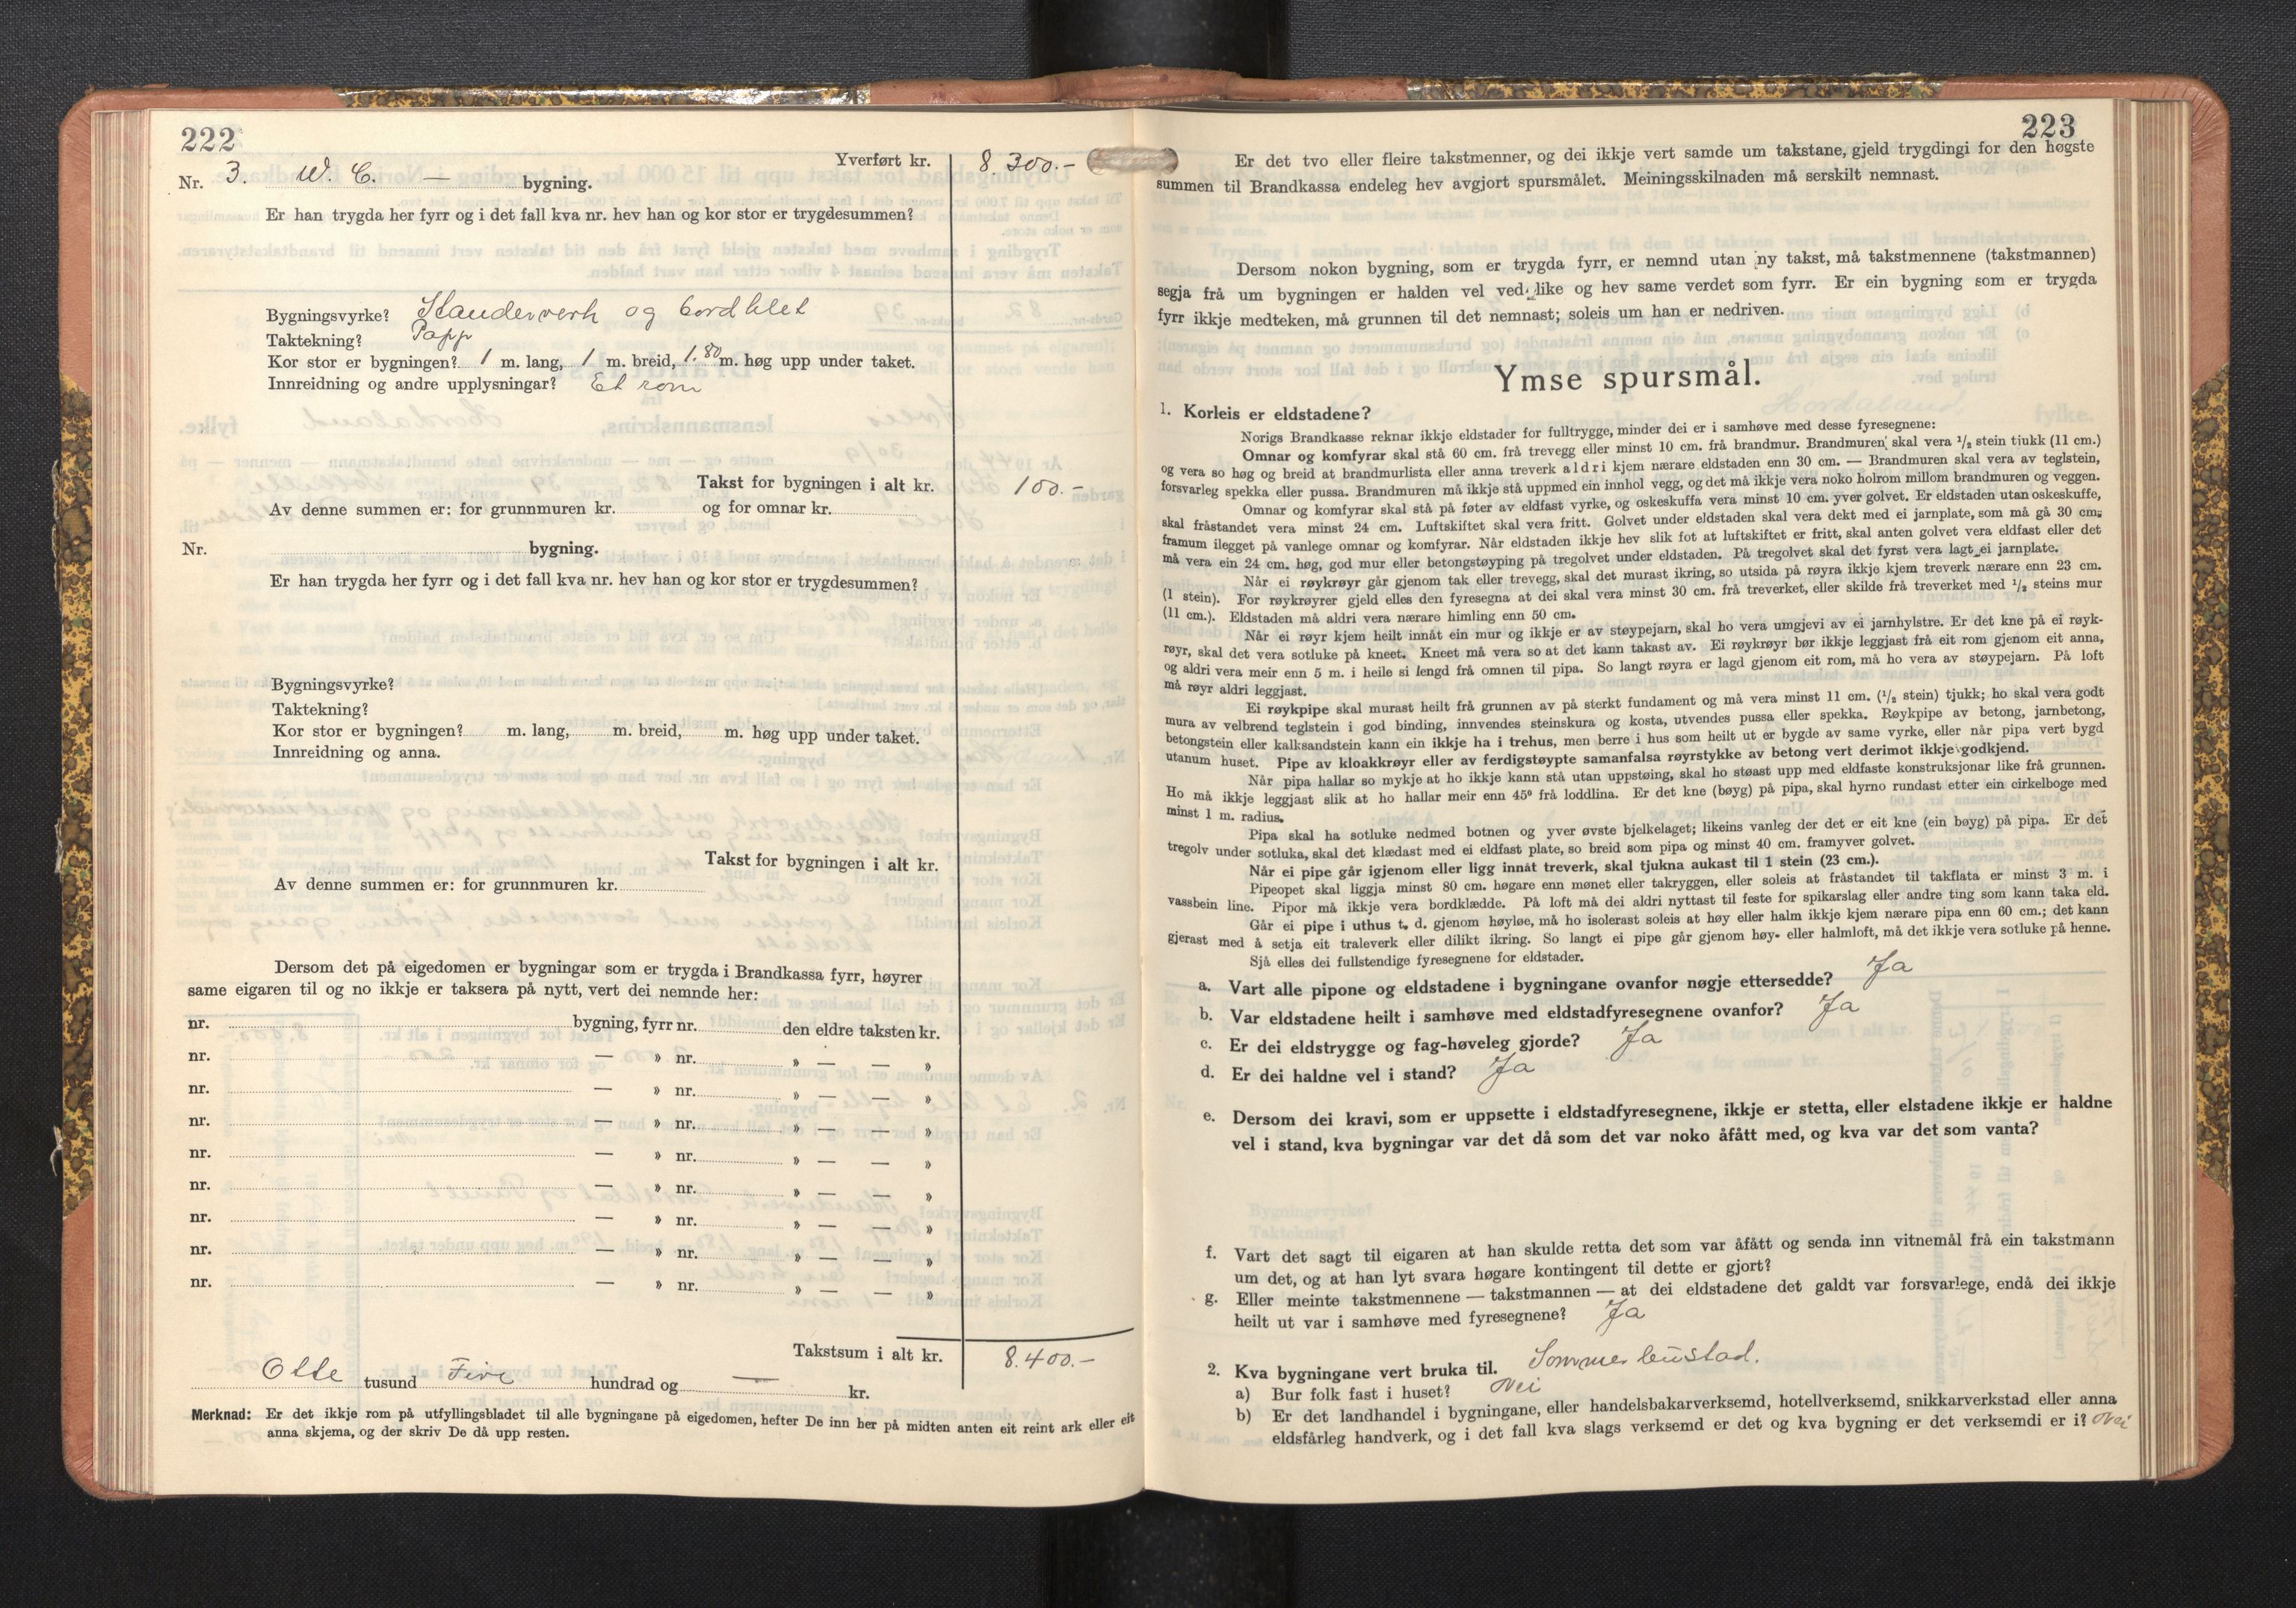 222
Yverført kr. 8 300.-
Nr. 3. W. C. — bygning.
Er han trygda her fyrr og i det fall kva nr. hev han og kor stor er trygdesummen?
Bygningsvyrke? Standerverk og bordklet
Taktekning? Papp
Kor stor er bygningen? 1 m. lang, 1 m. breid, 1.80 m. høg upp under taket.
Innreidning og andre upplysningar? Et rom
Takst for bygningen i alt kr. 100.-
Av denne summen er: for grunnmuren kr. og for omnar kr.
Nr. bygning.
Er han trygda her fyrr og i det fall kva nr. hev han og kor stor er trygdesummen?
Bygningsvyrke?
Taktekning?
Kor stor er bygningen? m. lang, m. breid, m. høg upp under taket.
Innreidning og anna.
Takst for bygningen i alt kr.
Av denne summen er: for grunnmuren kr.
Dersom det på eigedomen er bygningar som er trygda i Brandkassa fyrr, høyrer
same eigaren til og no ikkje er taksera på nytt, vert dei nemnde her:
nr. bygning, fyrr nr. den eldre taksten kr.
nr. — » nr. » — — »
nr. — » nr. » — — »
nr. — » nr. » — — »
nr. — » nr. » — — »
nr. — » nr. » — — »
nr. — » nr. » — — »
nr. — » nr. » — — »
nr. — » nr. » — — »
Takstsum i alt kr. 8.400.-
Otte tusund Fire hundrad og — kr.
Merknad: Er det ikkje rom på utfyllingsbladet til alle bygningane på eigedomen, hefter De inn her på midten anten eit reint ark eller eit
anna skjema, og der skriv De då upp resten.
223
Er det tvo eller fleire takstmenner, og dei ikkje vert samde um takstane, gjeld trygdingi for den høgste
summen til Brandkassa endeleg hev avgjort spursmålet. Meiningsskilnaden må serskilt nemnast.
Dersom nokon bygning, som er trygda fyrr, er nemnd utan ny takst, må takstmennene (takstmannen)
segja frå um bygningen er halden vel ved like og hev same verdet som fyrr. Er ein bygning som er trygda
fyrr ikkje medteken, må grunnen til det nemnast; soleis um han er nedriven.
Ymse spursmål.
1. Korleis er eldstadene?
Norigs Brandkasse reknar ikkje eldstader for fulltrygge, minder dei er i samhøve med desse fyresegnene:
Omnar og komfyrar skal stå 60 cm. frå trevegg eller minst 10 cm. frå brandmur. Brandmuren skal vera 1/2 stein tjukk (11 cm.)
og vera so høg og breid at brandmurlista eller anna treverk aldri kjem nærare eldstaden enn 30 cm. — Brandmuren skal vera av teglstein,
forsvarleg spekka eller pussa. Brandmuren må ikkje stå uppmed ein innhol vegg, og det må ikkje vera noko holrom millom brandmuren og veggen.
Omnar og komfyrar skal stå på føter av eldfast vyrke, og oskeskuffa vera minst 10 cm. yver golvet. Er eldstaden utan oskeskuffe,
skal fråstandet vera minst 24 cm. Luftskiftet skal vera fritt. Golvet under eldstaden skal vera dekt med ei jarnplate, som må gå 30 cm.
framum ilegget på vanlege omnar og komfyrar. Når eldstaden ikkje hev slik fot at luftskiftet er fritt, skal anten golvet vera eldfast eller det
må vera ein 24 cm. høg, god mur eller betongstøyping på tregolvet under eldstaden. På tregolvet skal det fyrst vera lagt ei jarnplate.
Når ei røykrøyr går gjenom tak eller trevegg, skal det murast ikring, so utsida på røyra ikkje kjem treverk nærare enn 23 cm.
(1 stein). For røykrøyrer gjeld elles den fyresegna at dei skal vera minst 30 cm. frå treverket, eller skilde frå treverket med 1/2 steins mur
(11 cm.). Eldstaden må aldri vera nærare himling enn 50 cm.
Når ei røyr kjem heilt innåt ein mur og ikkje er av støypejarn, skal ho vera umgjevi av ei jarnhylstre. Er det kne på ei røyk-
røyr, skal det vera sotluke på kneet. Kneet må vera so at det kann takast av. Ei røykrøyr bør ikkje leggjast frå eit rom gjenom eit anna,
og aldri vera meir enn 5 m. i heile si lengd frå omnen til pipa. So langt røyra er lagd gjenom eit rom, må ho vera av støypejarn. På loft
må røyr aldri leggjast.
Ei røykpipe skal murast heilt frå grunnen av på sterkt fundament og må vera minst 11 cm. (1/2 stein) tjukk; ho skal vera godt
mura av velbrend teglstein i god binding, innvendes steinskura og kosta, utvendes pussa eller spekka. Røykpipe av betong, jarnbetong,
betongstein eller kalksandstein kann ein ikkje ha i trehus, men berre i hus som heilt ut er bygde av same vyrke, eller når pipa vert bygd
utanum huset. Pipe av kloakkrøyr eller av ferdigstøypte samanfalsa røyrstykke av betong vert derimot ikkje godkjend.
Når pipa hallar so mykje at ho ikkje kann stå utan uppstøing, skal ho støast upp med eldfaste konstruksjonar like frå grunnen.
Ho må ikkje leggjast slik at ho hallar meir enn 45° frå loddlina. Er det kne (bøyg) på pipa, skal hyrno rundast etter ein cirkelboge med
minst 1 m. radius.
Pipa skal ha sotluke nedmed botnen og yver øvste bjelkelaget; likeins vanleg der det er eit kne (ein bøyg) på pipa. Er det
tregolv under sotluka, skal det klædast med ei eldfast plate, so breid som pipa og minst 40 cm. framyver golvet.
Når ei pipe går igjenom eller ligg innåt treverk, skal tjukna aukast til 1 stein (23 cm.).
Pipeopet skal liggja minst 80 cm. høgare enn mønet eller takryggen, eller soleis at fråstandet til takflata er minst 3 m. i
vassbein line. Pipor må ikkje vera bordklædde. På loft må dei aldri nyttast til feste for spikarslag eller andre ting som kann taka eld.
Går ei pipe i uthus t. d. gjenom høyløe, må ho isolerast soleis at høy eller halm ikkje kjem nærare pipa enn 60 cm.; det kann
gjerast med å setja eit traleverk eller dilikt ikring. So langt ei pipe går gjenom høy- eller halmloft, må det ikkje vera sotluke på henne.
Sjå elles dei fullstendige fyresegnene for eldstader.
a. Vart alle pipone og eldstadene i bygningane ovanfor nøgje ettersedde? Ja
b. Var eldstadene heilt i samhøve med eldstadfyresegnene ovanfor? Ja
c. Er dei eldstrygge og fag-høveleg gjorde? Ja
d. Er dei haldne vel i stand? Ja
e. Dersom dei kravi, som er uppsette i eldstadfyresegnene, ikkje er stetta, eller elstadene ikkje er haldne
vel i stand, kva bygningar var det då som det var noko åfått med, og kva var det som vanta?
f. Vart det sagt til eigaren at han skulde retta det som var åfått og senda inn vitnemål frå ein takstmann
um det, og at han lyt svara høgare kontingent til dette er gjort?
g. Eller meinte takstmennene — takstmannen — at dei eldstadene det galdt var forsvarlege, endå dei ikkje
heilt ut var i samhøve med fyresegnene? Ja
2. Kva bygningane vert bruka til. Sommerbustad.
a) Bur folk fast i huset? Nei
b) Er det landhandel i bygningane, eller handelsbakarverksemd, hotellverksemd, snikkarverkstad eller anna
eldsfårleg handverk, og i det fall kva slags verksemd er det og kva bygning er det verksemdi er i? Nei